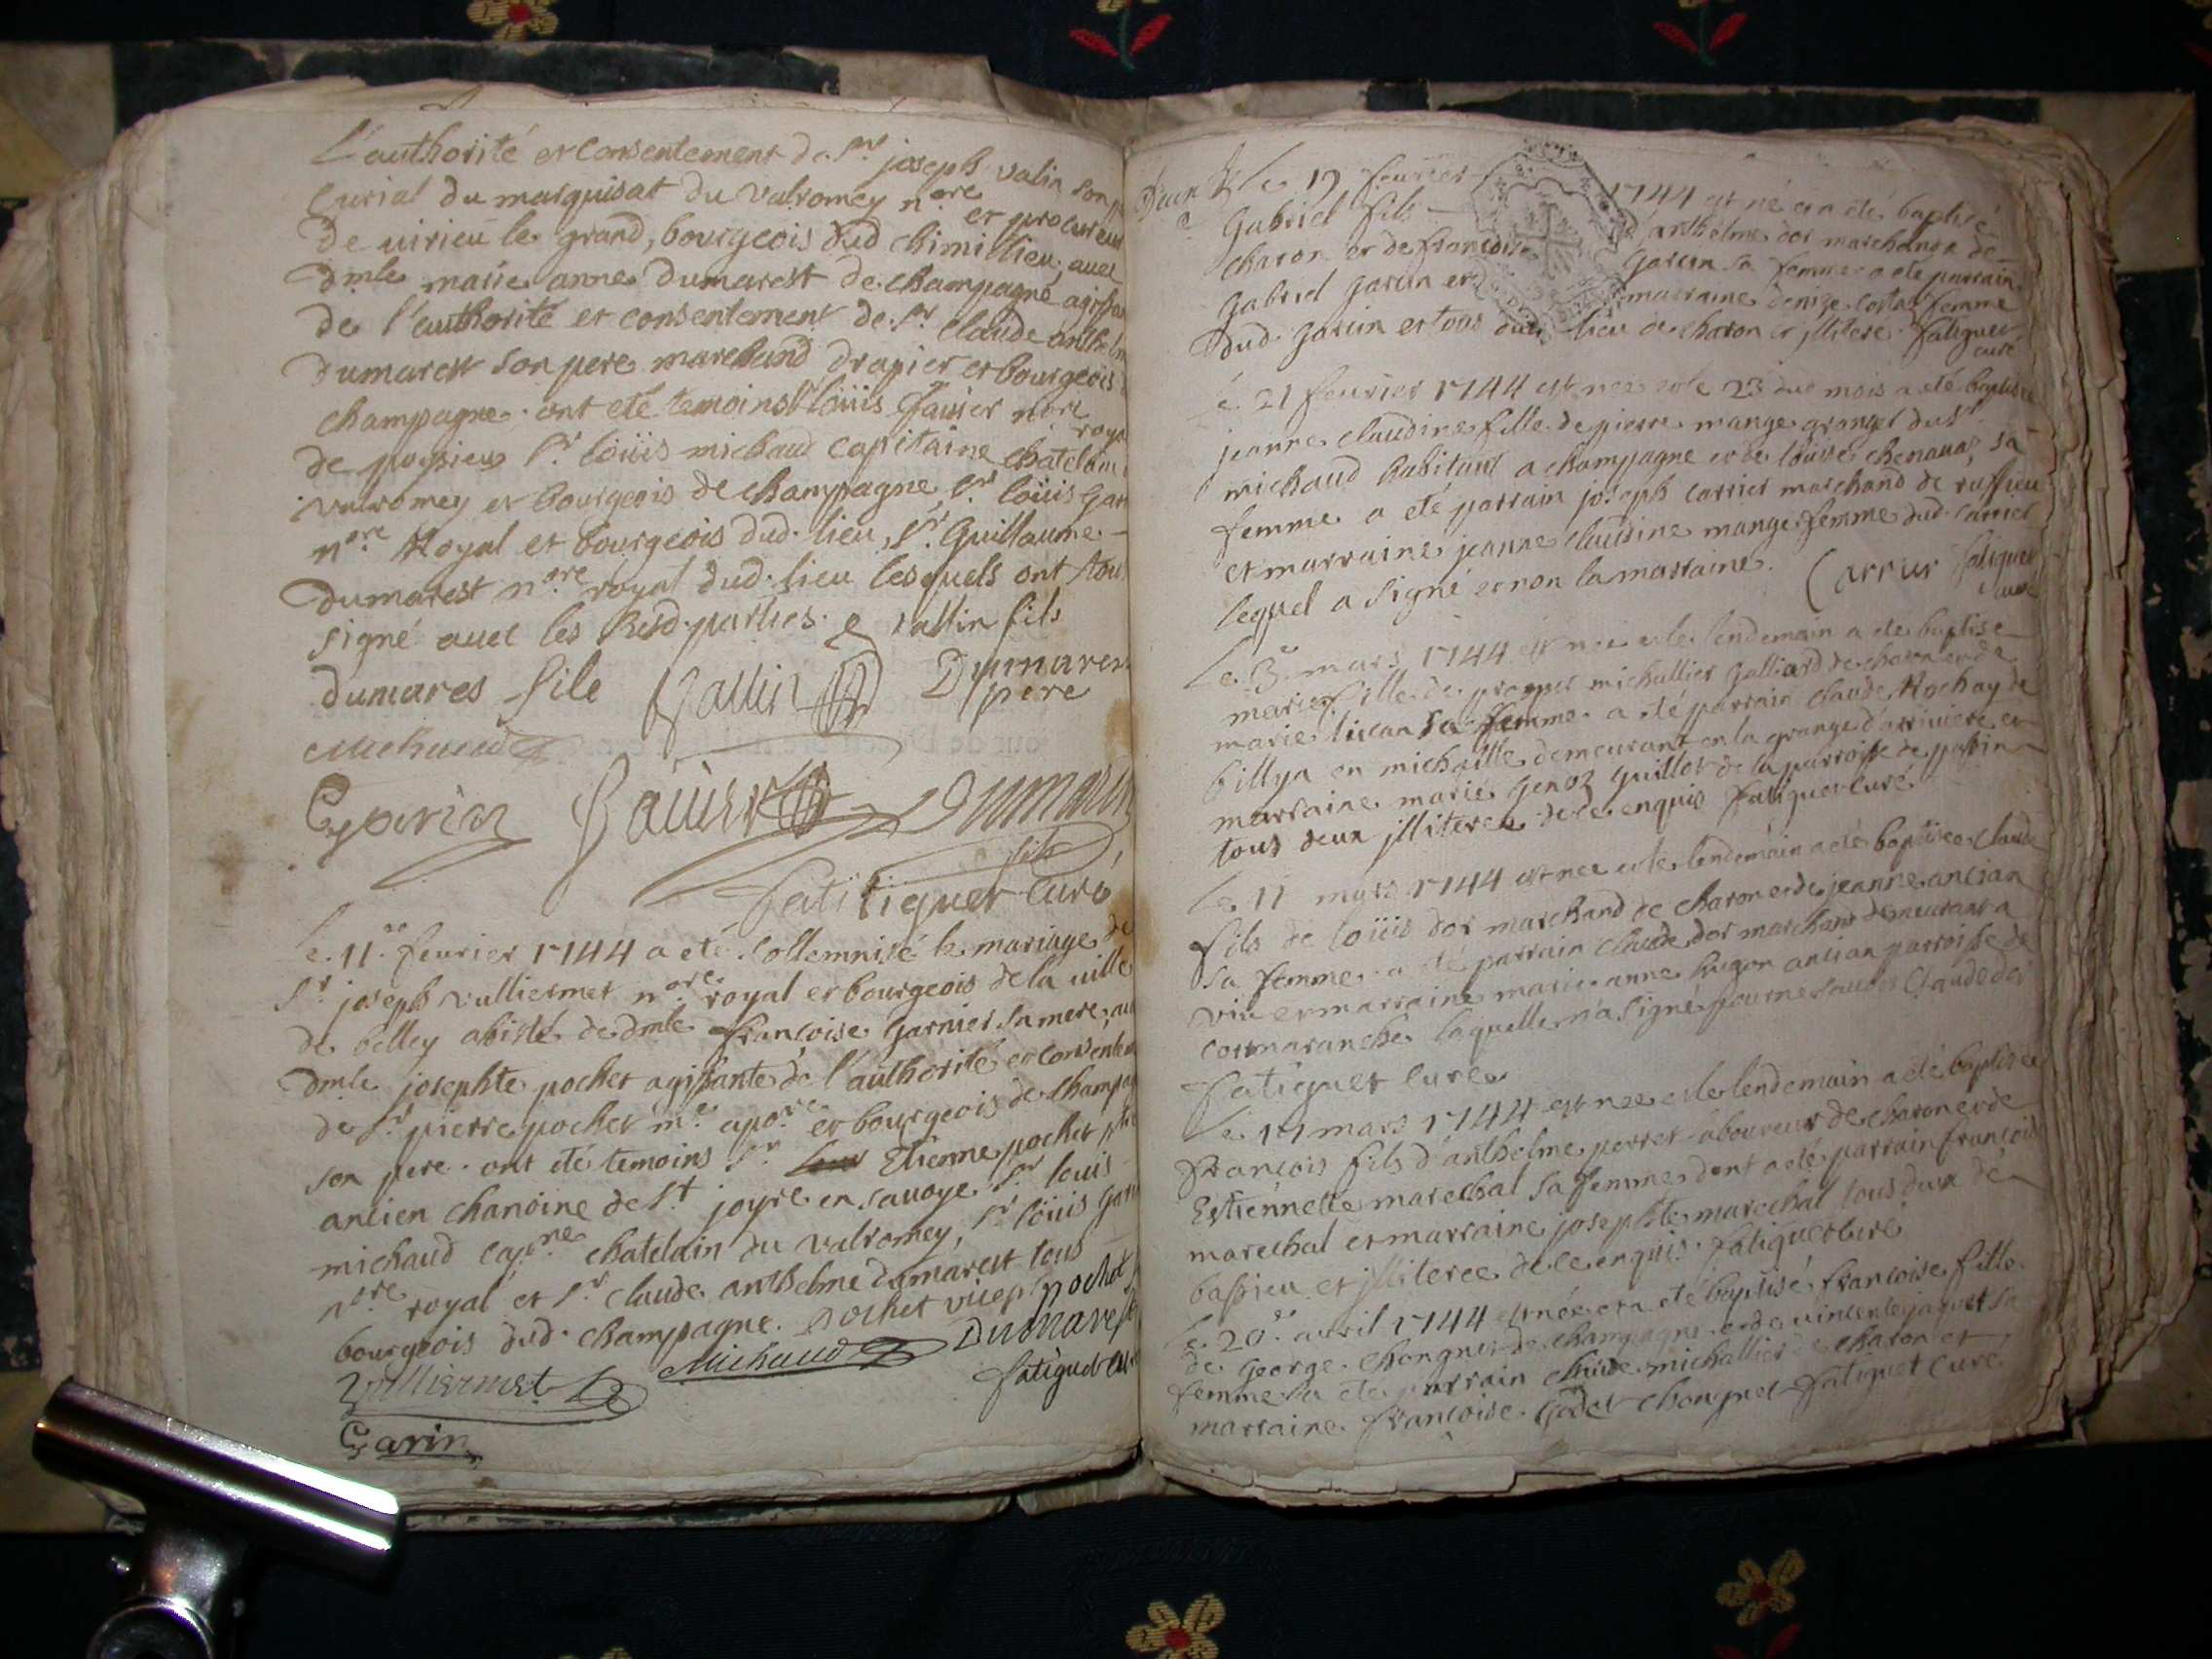 L'authorité et consentement de Sr joseph valin son
curial du marquisat du valromey nore et procureur
de virieu le grand, bourgeois dud chimillieu, avec
dmle marie anne dumarest de champagne agissan
de l'authorité et consentement de Sr claude anthelm
dumarest son pere marchand drapier et bourgeois
champagne. ont eté temoins loüis fauier nore roya
de Sr loüis michaud capitaine chatelain
valromey et bourgeois de champagne, Sr loüis gar
nore Royal et bourgeois dud. lieu, Sr Guillaume
dumarest nore royal dud. lieu lesquels ont tou
signé avec les parties. vallin fils
dumares file Vallin Dumares pere
Michaud
Dumare
fils
fatiguet curé
le 11e fevrier 1744 a eté sollemnisé le mariage de
Sr joseph vulliermet nore royal et bourgeois de la ville
de belley assisté de dmle françoise garnier sa mere, av
dmle josephte pochet agissante de l'authorité et consente
de Sr pierre pochet me apore et bourgeois de champag
son pere. ont eté temoins Sr Etienne pochet ptre
ancien chanoine de St joyre en savoye Sr louis
michaud capne chatelain du valromey, Sr loüis gar
nore royal et Sr claude anthelme dumarest tous
bourgeois dud. champagne. pochet pochet
Vulliermet Michaud Dumarest
fatiguet cu
Garin
le 19 fevrier 1744 est né et a eté baptisé
Gabriel fils d'anthelme dor marchand de
charon et de françoise garin sa femme a eté parrain
Gabriel garin et marraine denize costaz femme
dud. garin et tous dud lieu de charon et jlliteré. fatiguet
curé
le 21 fevrier 1744 est nee et le 23 dud mois a eté baptisée
jeanne claudine fille de pierre mange granger du Sr
michaud habitant a champagne et de loüise chenavaz sa
femme a eté parrain joseph carrier marchand de ruffieu
et marraine jeanne claudine mange femme dud. carrier
lequel a signé et non la marraine. Carrier fatiguet
curé
le 3e mars 1744 est nee et le lendemain a eté baptisé
marie fille de michallier galliard de charon et de
marie sa femme. a eté parrain claude Rochay de
billya en michaille demeurant en la grange d'arriviere et
marraine marie genoz guillot de la parroisse de passin
tous deux jlliteres de ce enquis fatiguet curé
le 11 mars 1744 est nee et le lendemain a eté baptisee claude
fils de loüis dor marchand de charon et de jeanne ancian
sa femme. a eté parrain claude dor marchand demeurant a
viu et marraine marie anne hugon ancian parroisse de
cormaranche laquelle n'a signé pour ne sauoir Claude dor
fatiguet curé
le 11 mars 1744 est nee et le lendemain a eté baptisée
françois fils d'anthelme perret laboureur de charon et de
Estiennette marechal sa femme dont a eté parrain françois
marechal et marraine josephte marechal tous deux de
bassieu et jlliteree de ce enquis. fatiguet curé
le 20e avril 1744 est née et a eté baptisé françoise fille
de george chongnet de champagne et de vincente jaquet sa
femme. a eté parrain claude michallier de charon et
marraine françoise godet chongnet fatiguet curé